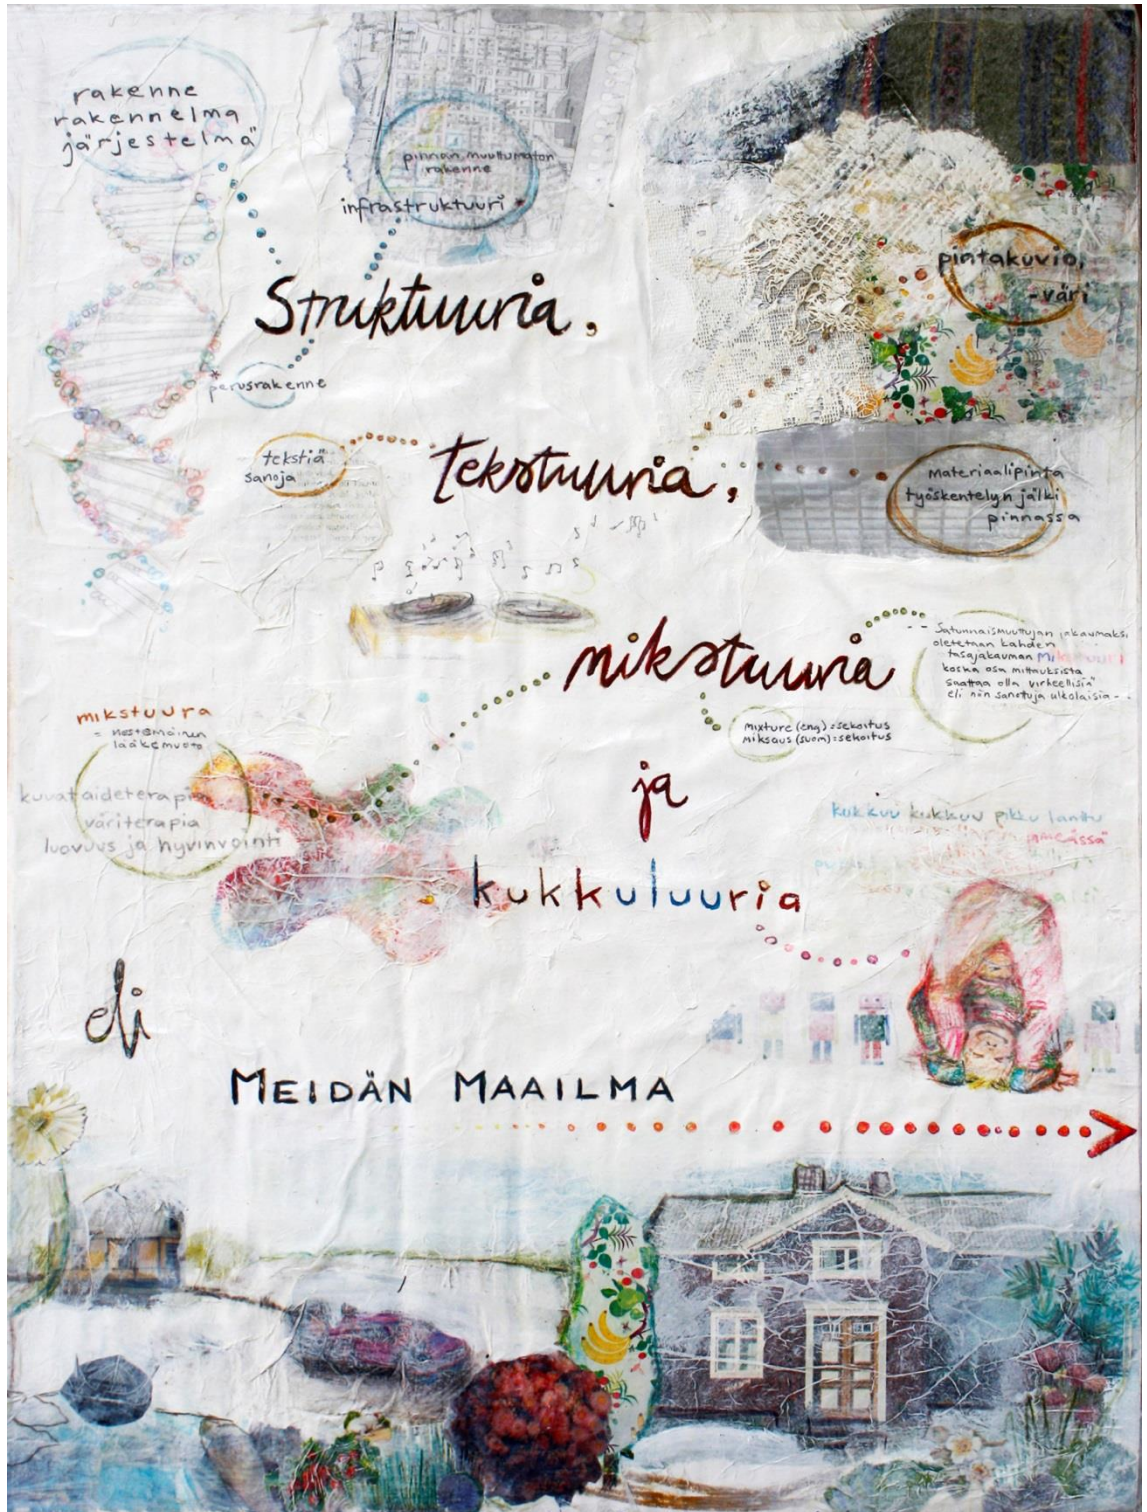 rakenne
rakennelma
järjestelmä
pinnan muuttumaton
rakenne
infrastruktuuri *
pintakuvio,
-väri
Struktuuria,
* perusrakenne
tekstiä
sanoja
tekstuuria,
materiaalipinta
työskentelyn jälki
pinnassa
mikstuuria
-- Satunnaismuuttujan jakaumaksi
oletetaan kahden
tasajakauman mikstuuri
koska osa mittauksista
saattaa olla virheellisiä
eli niin sanottuja ulkolaisia --
mixture (eng) = sekoitus
miksaus (suom) = sekoitus
mikstuura
= nestemäinen
lääkemuoto
kuvataideterapia
väriterapia
luovuus ja hyvinvointi
ja
kukkuu kukkuu pikku lantu
kukkuluuria
eli
MEIDÄN MAAILMA